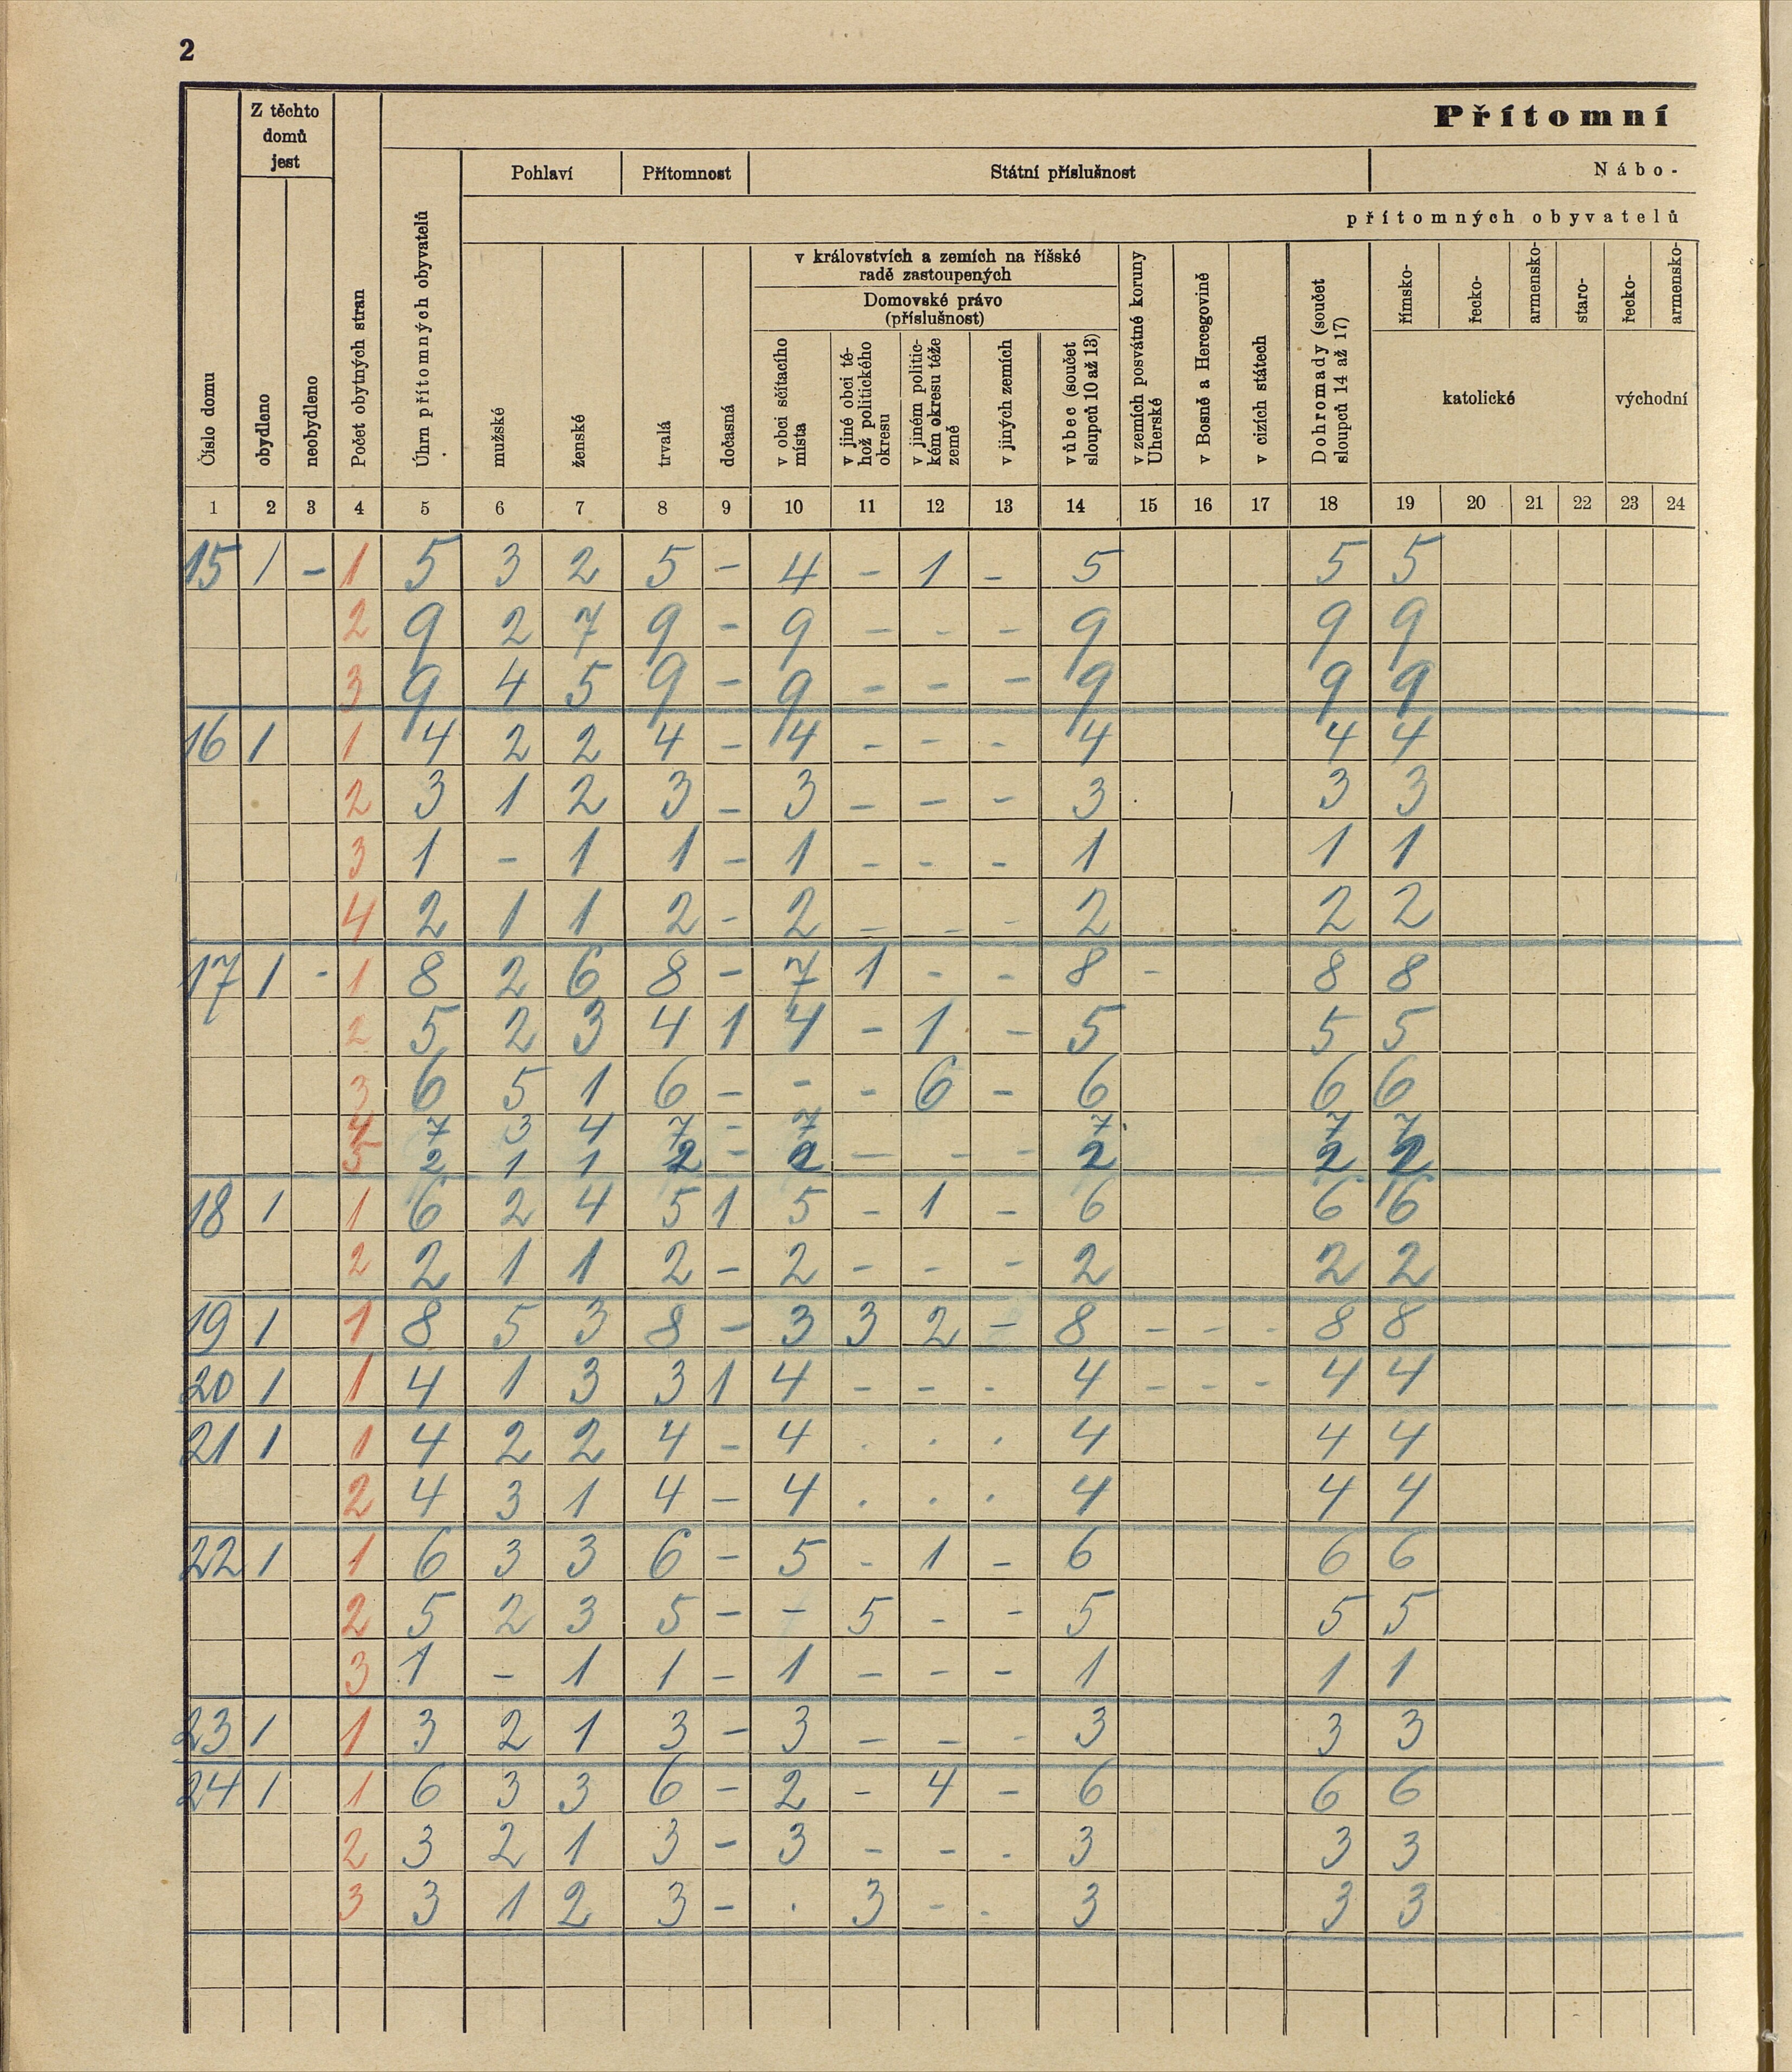 2
Přítomní
Z těchto
domů
jest
Pohlaví Přítomnost Státní příslušnost Nábo-
přítomných obyvatelů
Číslo domu
obydleno
neobydleno
Počet obytných stran
Úhrn přítomných obyvatelů
mužské
ženské
trvalá
dočasná
v královstvích a zemích na říšské
radě zastoupených
Domovské právo
(příslušnost)
v obci sčítacího
místa
v jiné obci té-
hož politického
okresu
v jiném politic-
kém okresu téže
země
v jiných zemích
vůbec (součet
sloupců 10 až 13)
v zemích posvátné koruny
Uherské
v Bosně a Hercegovině
v cizích státech
Dohromady (součet
sloupců 14 až 17)
římsko-
řecko-
armensko-
staro-
řecko-
armensko-
katolické východní
1 2 3 4 5 6 7 8 9 10 11 12 13 14 15 16 17 18 19 20 21 22 23 24
15 1 - 1 5 3 2 5 - 4 - 1 - 5 5 5
2 9 2 7 9 - 9 - - - 9 9 9
3 9 4 5 9 - 9 - - - 9 9 9
16 1 1 4 2 2 4 - 4 - - - 4 4 4
2 3 1 2 3 - 3 - - - 3 3 3
3 1 - 1 1 - 1 - - - 1 1 1
4 2 1 1 2 - 2 - - - 2 2 2
17 1 - 1 8 2 6 8 - 7 1 - - 8 - 8 8
2 5 2 3 4 1 4 - 1 - 5 5 5
3 6 5 1 6 - - - 6 - 6 6 6
4 7 3 4 7 - 7 7 7 7
5 2 1 1 2 - 2 - - - 2 2 2
18 1 1 6 2 4 5 1 5 - 1 - 6 6 6
2 2 1 1 2 - 2 - - - 2 2 2
19 1 1 8 5 3 8 - 3 3 2 - 8 - - - 8 8
20 1 1 4 1 3 3 1 4 - - - 4 - - - 4 4
21 1 1 4 2 2 4 - 4 . . . 4 4 4
2 4 3 1 4 - 4 . . . 4 4 4
22 1 1 6 3 3 6 - 5 - 1 - 6 6 6
2 5 2 3 5 - - 5 - - 5 5 5
3 1 - 1 1 - 1 - - - 1 1 1
23 1 1 3 2 1 3 - 3 - - - 3 3 3
24 1 1 6 3 3 6 - 2 - 4 - 6 6 6
2 3 2 1 3 - 3 - - - 3 3 3
3 3 1 2 3 - . 3 - - 3 3 3